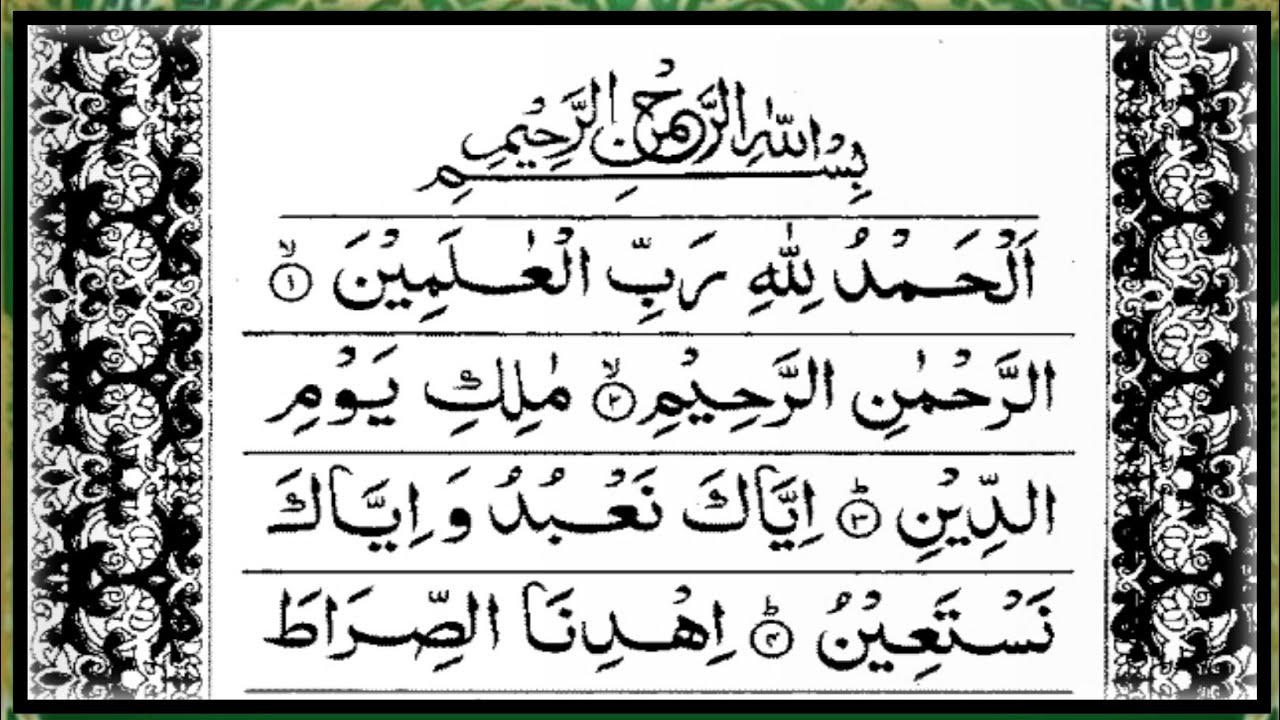 بِسْمِ اللّٰهِ الرَّحْمٰنِ الرَّحِيْمِ
اَلْحَمْدُ لِلّٰهِ رَبِّ الْعٰلَمِيْنَ ۙ﴿۱﴾
الرَّحْمٰنِ الرَّحِيْمِ ۙ﴿۲﴾ مٰلِكِ يَوْمِ
الدِّيْنِ ؕ﴿۳﴾ اِيَّاكَ نَعْبُدُ وَ اِيَّاكَ
نَسْتَعِيْنُ ؕ﴿۴﴾ اِهْدِنَا الصِّرَاطَ